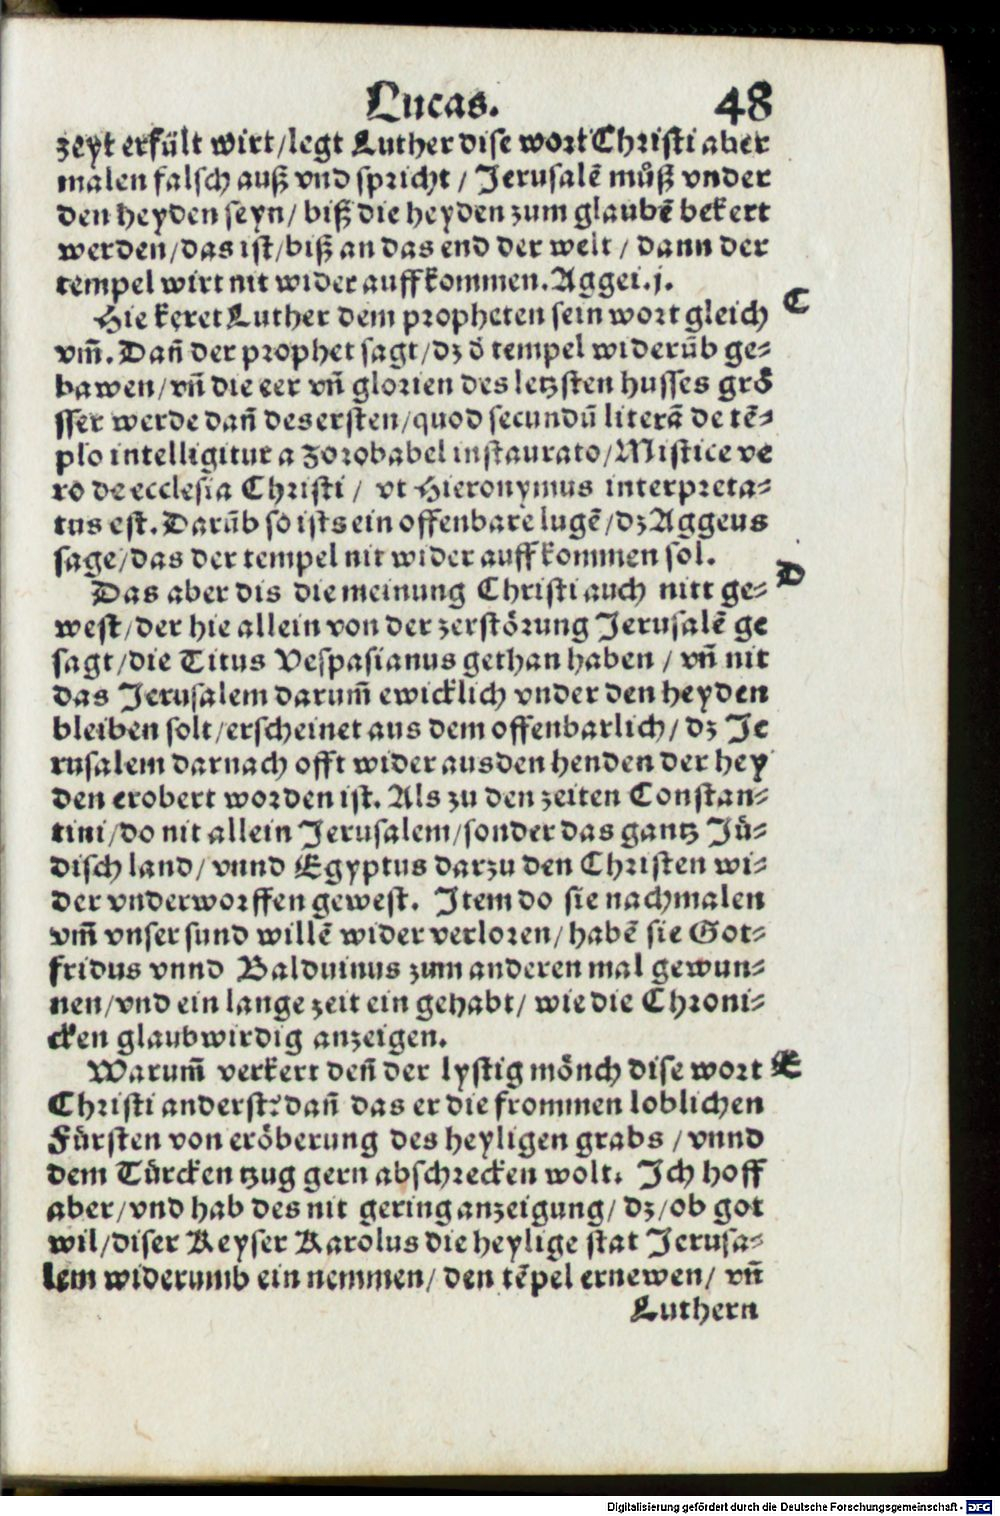 Lucas. 48
zeyt erfült wirt/legt Luther dise wort Christi aber
malen falsch auß vnd spricht / Jerusalẽ můß vnder
den heyden seyn/ biß die heyden zum glaubẽ bekert
werden/das ist/biß an das end der welt / dann der
tempel wirt nit wider auffkommen.Aggei.j.
Hie keret Luther dem propheten sein wort gleich C
vm̃.Dañ der prophet sagt/dz d̕ tempel widerũb ge-
bawen/vñ die eer vñ glorien des letzsten husses grö
sser werde dañ des ersten/quod secundũ literã de tẽ-
plo intelligitur a Zorobabel instaurato/Mistice ve
ro de ecclesia Christi / vt Hieronymus interpreta-
tus est.Darũb so ists ein offenbare lugẽ/dz Aggeus
sage/das der tempel nit wider auffkommen sol.
Das aber dis die meinung Christi auch nitt ge- D
west/der hie allein von der zerstörung Jerusalẽ ge
sagt/die Titus Vespasianus gethan haben / vñ nit
das Jerusalem darum̃ ewicklich vnder den heyden
bleiben solt/erscheinet aus dem offenbarlich/ dz Je
rusalem darnach offt wider aus den henden der hey
den erobert worden ist. Als zu den zeiten Constan-
tini/do nit allein Jerusalem/sonder das gantz Jü-
disch land/ vnnd Egyptus darzu den Christen wi-
der vnderworffen gewest. Item do sie nachmalen
vm̃ vnser sund willẽ wider verloren/ habẽ sie Got-
fridus vnnd Balduinus zum anderen mal gewun-
nen/vnd ein lange zeit ein gehabt/ wie die Chroni-
cken glaubwirdig anzeigen.
Warum̃ verkert deñ der lystig mönch dise wort E
Christi anderst? dañ das er die frommen loblichen
Fürsten von eröberung des heyligen grabs / vnnd
dem Türcken tzug gern abschrecken wolt. Ich hoff
aber/vnd hab des nit gering anzeigung/ dz/ob got
wil/diser Keyser Karolus die heylige stat Jerusa-
lem widerumb ein nemmen/ den tẽpel ernewen/ vñ
Luthern
Digitalisierung gefördert durch die Deutsche Forschungsgemeinschaft - DFG